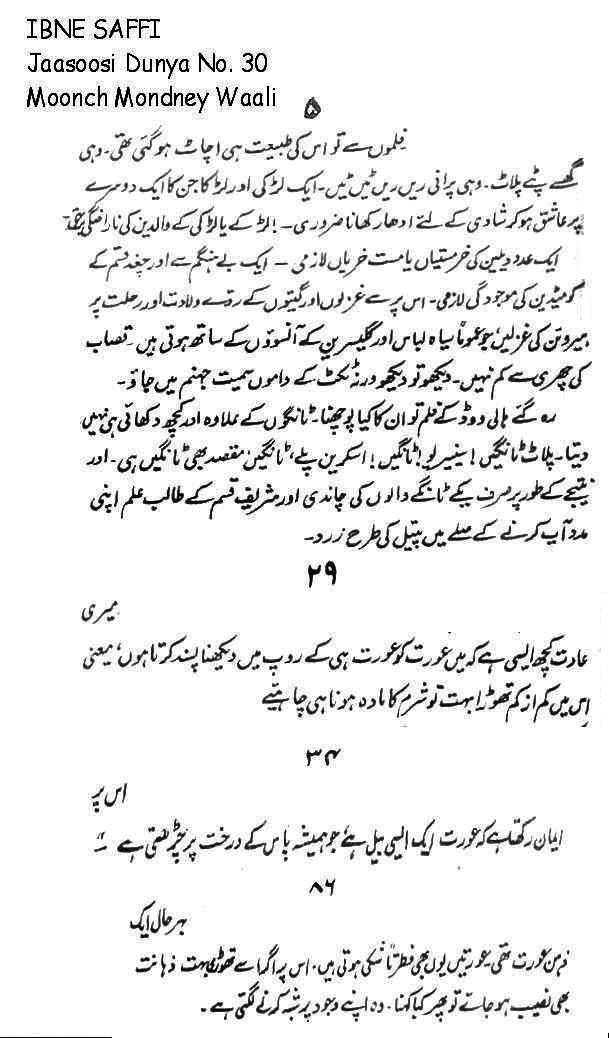 IBNE SAFFI
Jaasoosi Dunya No. 30
Moonch Mondney Waali
۵
فلموں سے تو اس کی طبیعت ہی اچاٹ ہو گئی تھی۔ وہی
گھسے پٹے پلاٹ۔ وہی پرانی ریں ریں ٹیں ٹیں۔ ایک لڑکی اور لڑکا جن کا ایک دوسرے
پر عاشق ہو کر شادی کے لئے ادھار کھانا ضروری۔ لڑکے یا لڑکی کے والدین کی ناراضگی
ایک عدد ویلین کی خرمستیاں یا مست خریاں لازمی – ایک بے ہنگم سے اور چغد قسم کے
کومیڈین کی موجودگی لازمی۔ اس پر سے غزلوں اور گیتوں کے ولادت اور رحلت پر
ہیروئن کی غزلیں جو عموماً سیاہ لباس اور گلیسرین کے آنسوؤں کے ساتھ ہوتی ہیں۔ قصاب
کی چھری سے کم نہیں۔ دیکھو تو دیکھو ورنہ ٹکٹ کے داموں سمیت جہنم میں جاؤ۔
رہ گئے ہالی ووڈ کے فلم تو ان کا کیا پوچھنا۔ ٹانگوں کے علاوہ اور کچھ دکھائی ہی نہیں
دیتا۔ پلاٹ ٹانگیں! سنیریو! ٹانگیں! اسکرین پلے، ٹانگیں مقصد بھی ٹانگیں ہی۔ اور
نتیجے کے طور پر صرف یکے ٹانگے والوں کی چاندی اور شریف قسم کے طالب علم اپنی
مدد آپ کرنے کے صلے میں پیتل کی طرح زرد۔
۲۹
میری
عادت کچھ ایسی ہے کہ میں عورت کو عورت ہی کے روپ میں دیکھنا پسند کرتا ہوں، یعنی
اس میں کم از کم تھوڑا بہت تو شرم کا مادہ ہونا ہی چاہئیے
۳۴
اس پر
ایمان رکھتا ہے کہ عورت ایک ایسی بیل ہے جو ہمیشہ پاس کے درخت پر چڑھتی ہے۔"
۸۶
بہر حال ایک
ذہین عورت تھی۔ عورتیں یوں بھی فطرتاً شکی ہوتی ہیں۔ اس پر اگر اسے تھوڑی بہت ذہانت
بھی نصیب ہو جائے تو پھر کیا کہنا۔ وہ اپنے وجود پر شبہ کرنے لگتی ہے۔